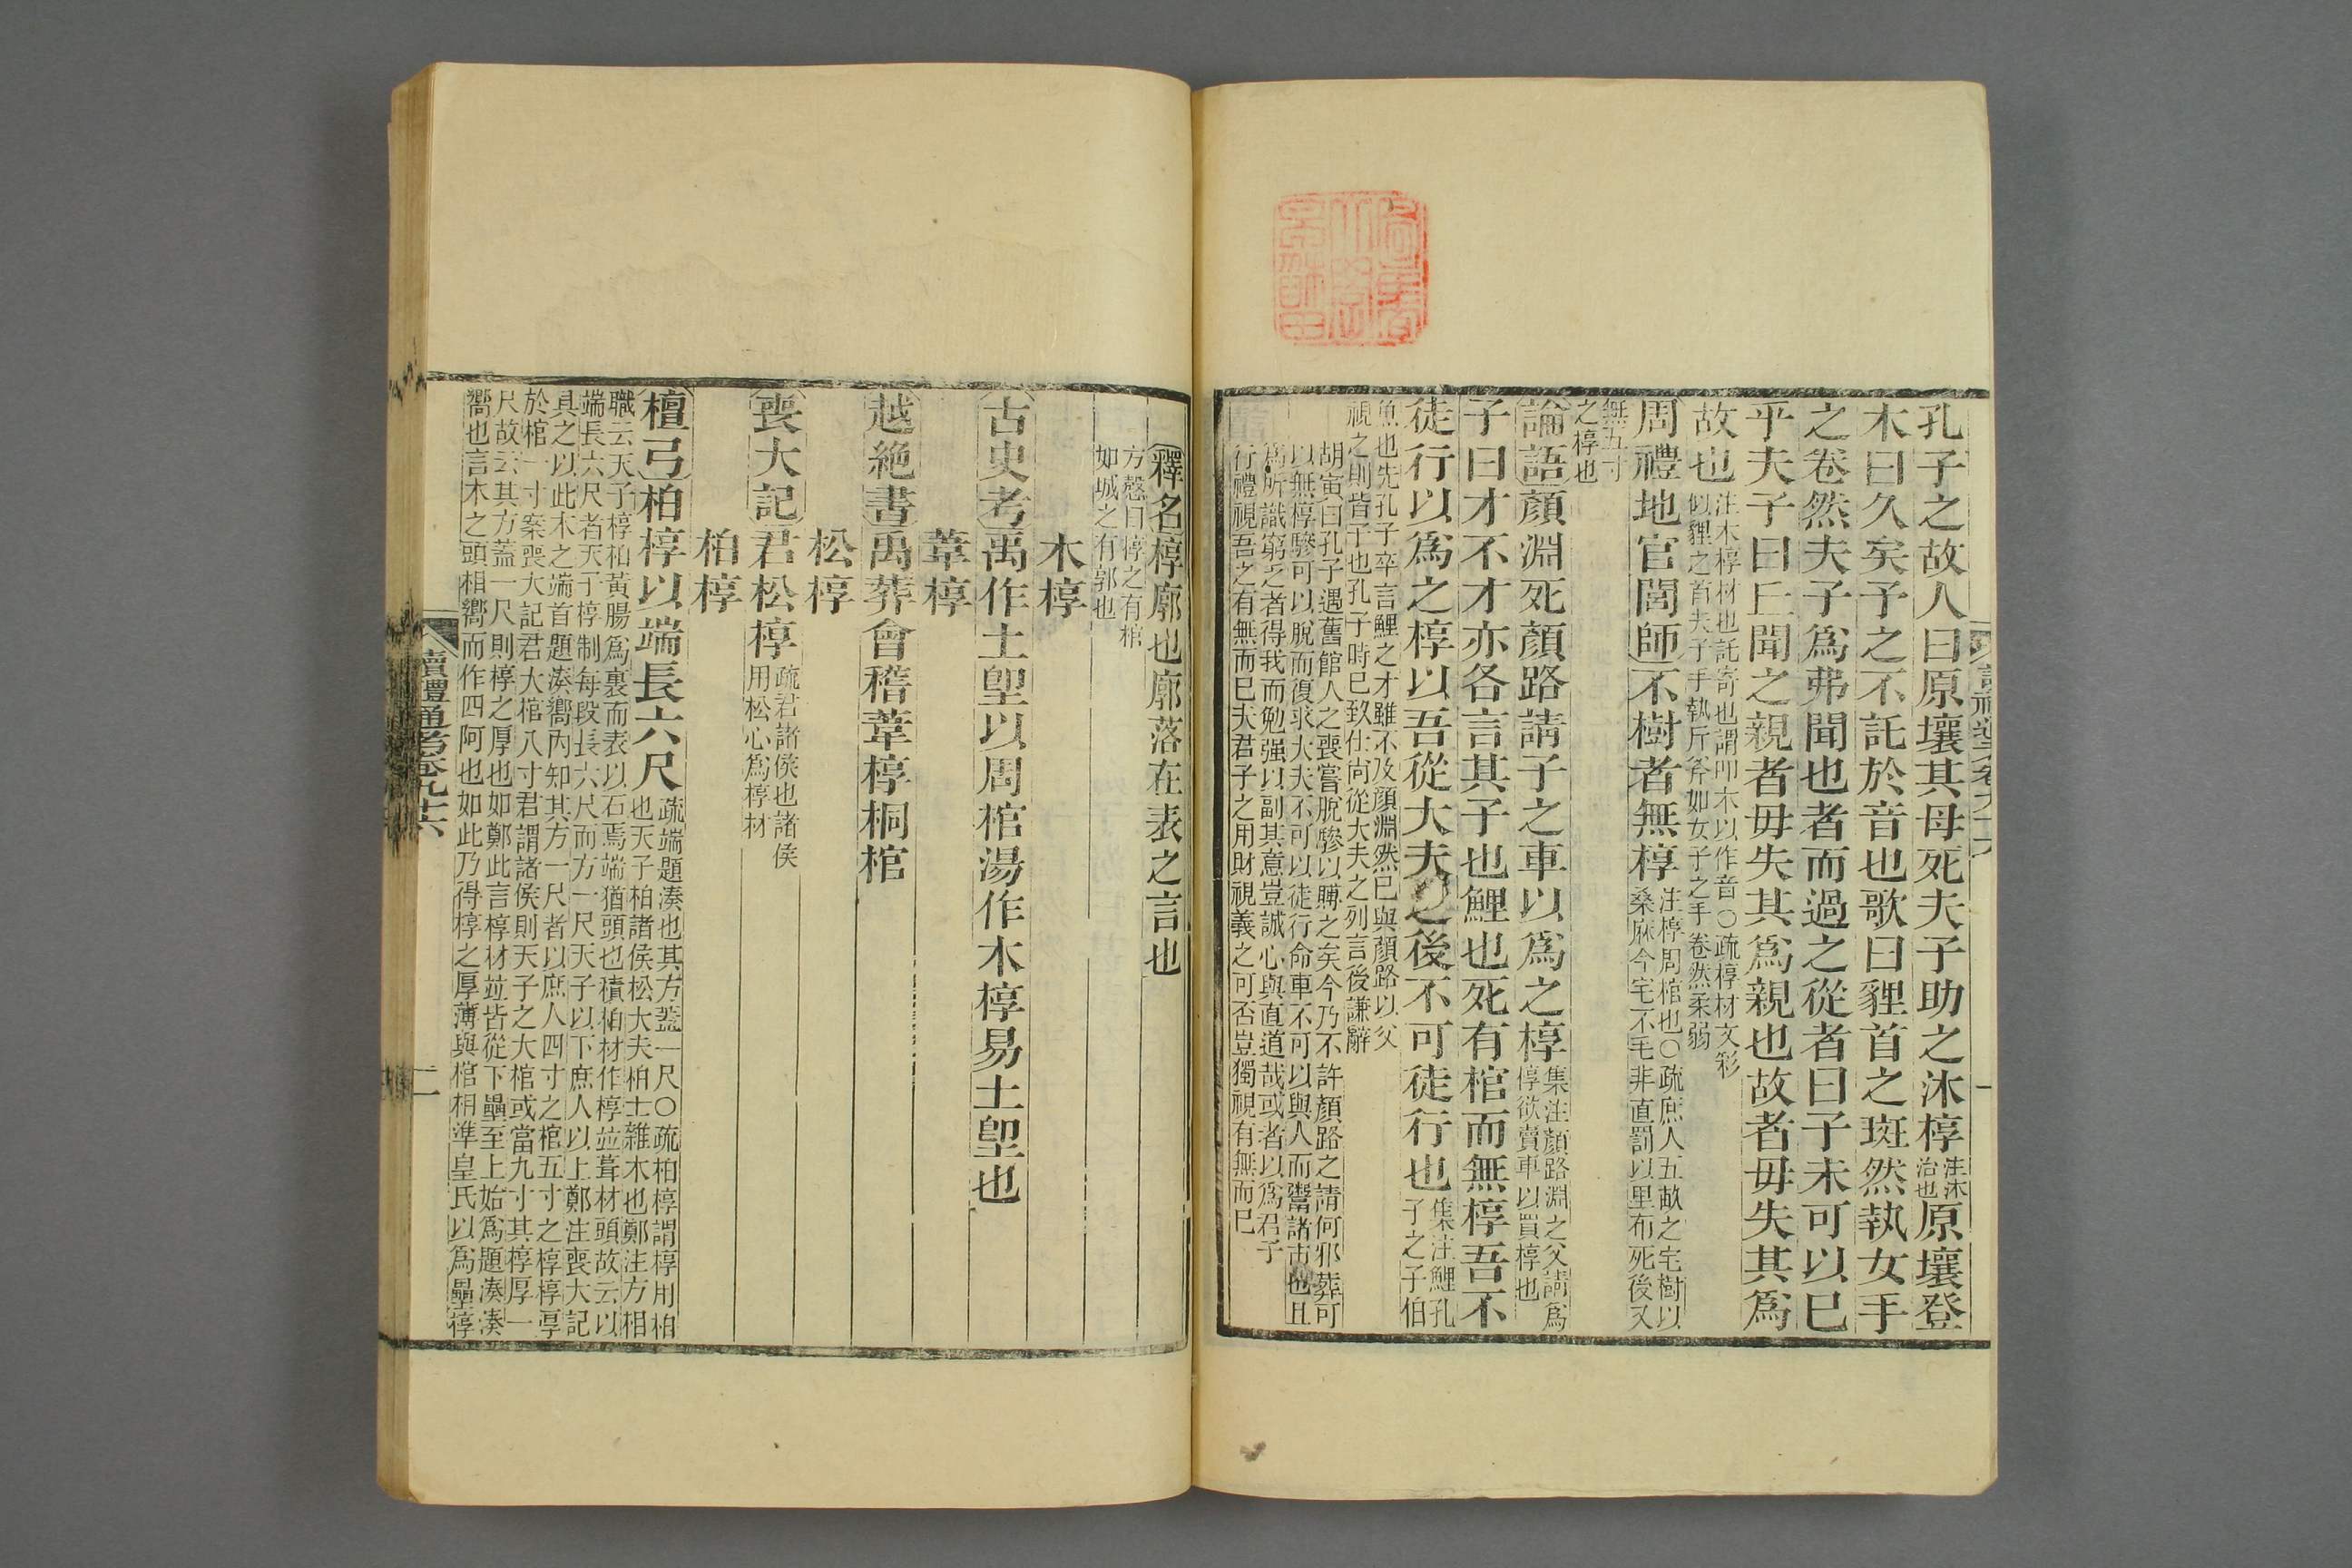 孔子之故人曰原壤其母死夫子助之沐椁注沐治也原壤登
木曰久矣予之不託於音也歌曰貍首之斑然執女手
之卷然夫子爲弗聞也者而過之從者曰子未可以已
乎夫子曰丘聞之親者毋失其爲親也故者毋失其爲
故也注木椁材也託寄也謂叩木以作音○疏椁材文彩
似貍之首夫子手執斤斧如女子之手卷然柔弱
周禮地官閭師不樹者無椁注椁周棺也○疏庶人五畝之宅樹以
桑麻今宅不毛非直罰以里布死後又
無五寸
之椁也
論語顏淵死顏路請子之車以爲之椁集注顏路淵之父請爲
椁欲賣車以買椁也
子曰才不才亦各言其子也鯉也死有棺而無椁吾不
徒行以爲之椁以吾從大夫之後不可徒行也集注鯉孔
子之子伯
魚也先孔子卒言鯉之才雖不及顏淵然已與顏路以父
視之則皆子也孔子時已致仕尚從大夫之列言後謙辭
胡寅曰孔子遇舊館人之喪嘗脫驂以賻之矣今乃不許顏路之請何邪葬可
以無椁驂可以脫而復求大夫不可以徒行命車不可以與人而鬻諸市也且
爲所識窮乏者得我而勉强以副其意豈誠心與直道哉或者以爲君子
行禮視吾之有無而已夫君子之用財視義之可否豈獨視有無而已
讀禮通考卷九十六
一
釋名椁廓也廓落在表之言也
方慤曰椁之有棺
如城之有郭也
木椁
古史考禹作土堲以周棺湯作木椁易土堲也
葦椁
越絶書禹葬會稽葦椁桐棺
松椁
喪大記君松椁疏君諸侯也諸侯
用松心爲椁材
柏椁
檀弓柏椁以端長六尺疏端題湊也其方蓋一尺○疏柏椁謂椁用柏
也天子柏諸侯松大夫柏士雜木也鄭注方相
職云天子椁柏黃腸爲裏而表以石焉端猶頭也積柏材作椁並葺材頭故云以
端長六尺者天子椁制每段長六尺而方一尺天子以下庶人以上鄭注喪大記
具之以此木之端首題湊嚮內知其方一尺者以庶人四寸之棺五寸之椁椁厚
於棺一寸案喪大記君大棺八寸君謂諸侯則天子之大棺或當九寸其椁厚一
尺故云其方蓋一尺則椁之厚也如鄭此言椁材並皆從下壘至上始爲題湊湊
嚮也言木之頭相嚮而作四阿也如此乃得椁之厚薄與棺相準皇氏以爲壘椁
讀禮通考卷九十六
二